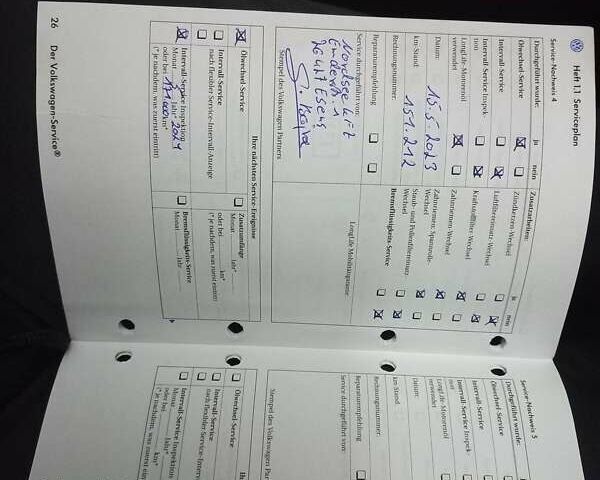 Heft 1.1 Serviceplan
Service-Nachweis 4
Durchgeführt wurde: ja nein
Ölwechsel-Service
Intervall-Service
Intervall-Service Inspek-
tion
LongLife-Motorenöl
verwendet
Datum: 15.5.2023
km-Stand: 151.212
Rechnungsnummer:
Reparaturempfehlung
Service durchgeführt von:
Nordsee Lift
26427 Esens
Stempel des Volkswagen Partners
Zusatzarbeiten: ja nein
Zündkerzen-Wechsel
Luftfiltereinsatz-Wechsel
Kraftstofffilter-Wechsel
Zahnriemen-Wechsel
Zahnriemen, Spannrolle-
Wechsel
Staub- und Pollenfiltereinsatz-
Wechsel
Bremsflüssigkeits-Service
LongLife Mobilitätsgarantie
Ihre nächsten Service-Ereignisse
Ölwechsel-Service
Intervall-Service
nach flexibler Service-Intervall-Anzeige
Intervall-Service Inspektion
Monat 5 Jahr* 2024
oder bei km*
(* je nachdem, was zuerst eintritt)
Zusatzumfänge
Monat Jahr*
oder bei km*
(* je nachdem, was zuerst eintritt)
Bremsflüssigkeits-Service
Monat Jahr
26 Der Volkswagen-Service®
Service-Nachweis 5
Durchgeführt wurde:
Ölwechsel-Service
Intervall-Service
Intervall-Service Inspek-
tion
LongLife-Motorenöl
verwendet
Datum:
km-Stand:
Rechnungsnummer:
Reparaturempfehlung
Service durchgeführt von:
Stempel des Volkswagen Partn
Ölwechsel-Service
Intervall-Service
nach flexibler Service-Interv
Intervall-Service Inspektion
Monat Jahr*
oder bei km*
(* je nachdem, was zuerst eintritt)